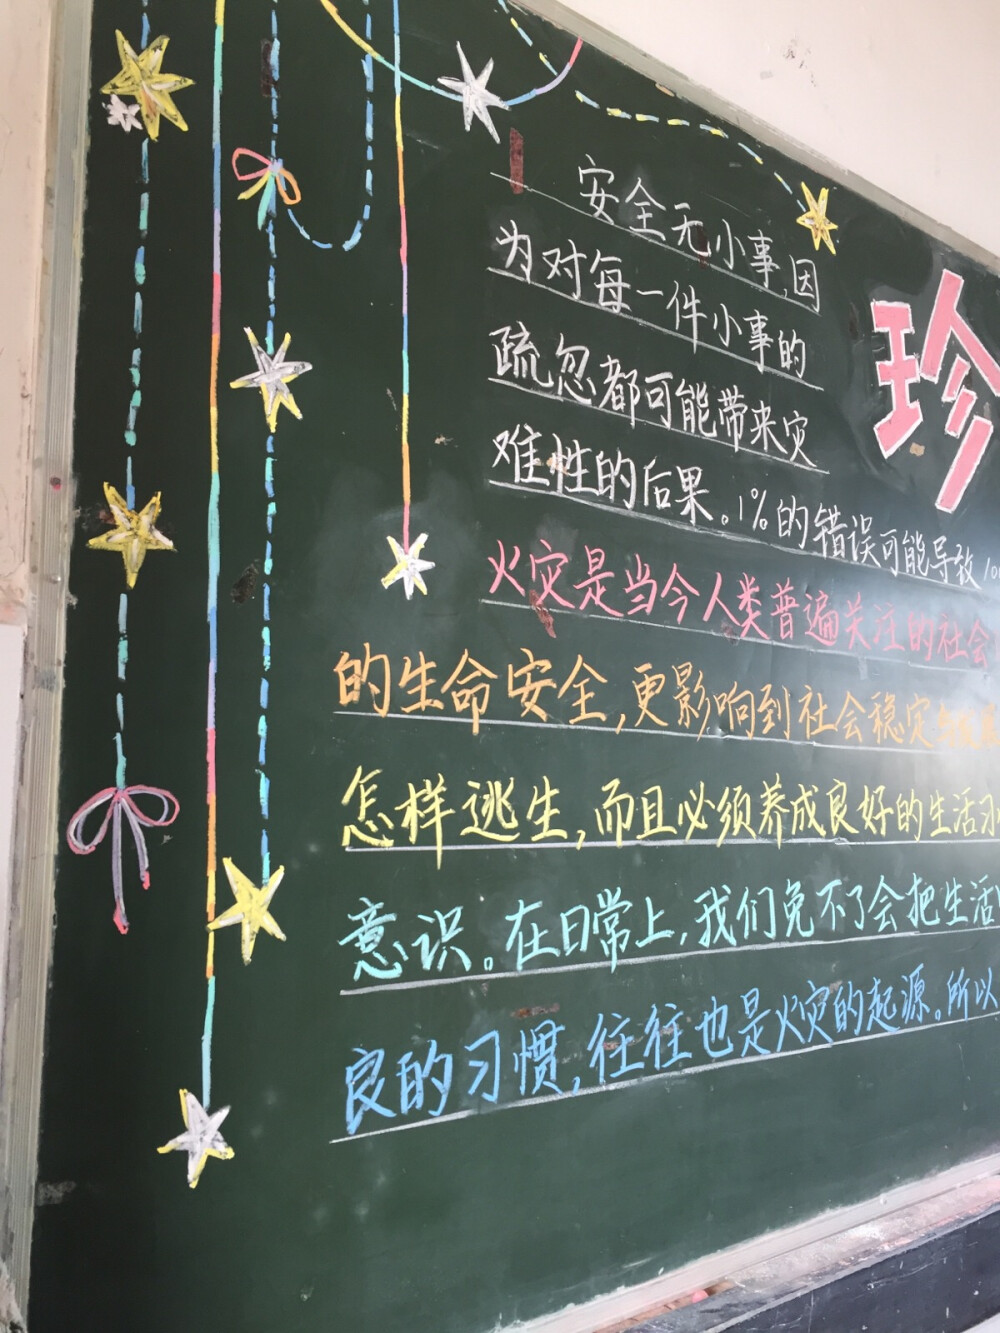 安全无小事,因
为对每一件小事的
疏忽都可能带来灾
难性的后果。1%的错误可能导致10
珍
火灾是当今人类普遍关注的社会
的生命安全,更影响到社会稳定
怎样逃生,而且必须养成良好的生活习
意识。在日常上,我们免不了会把生活
良的习惯,往往也是火灾的起源。所以